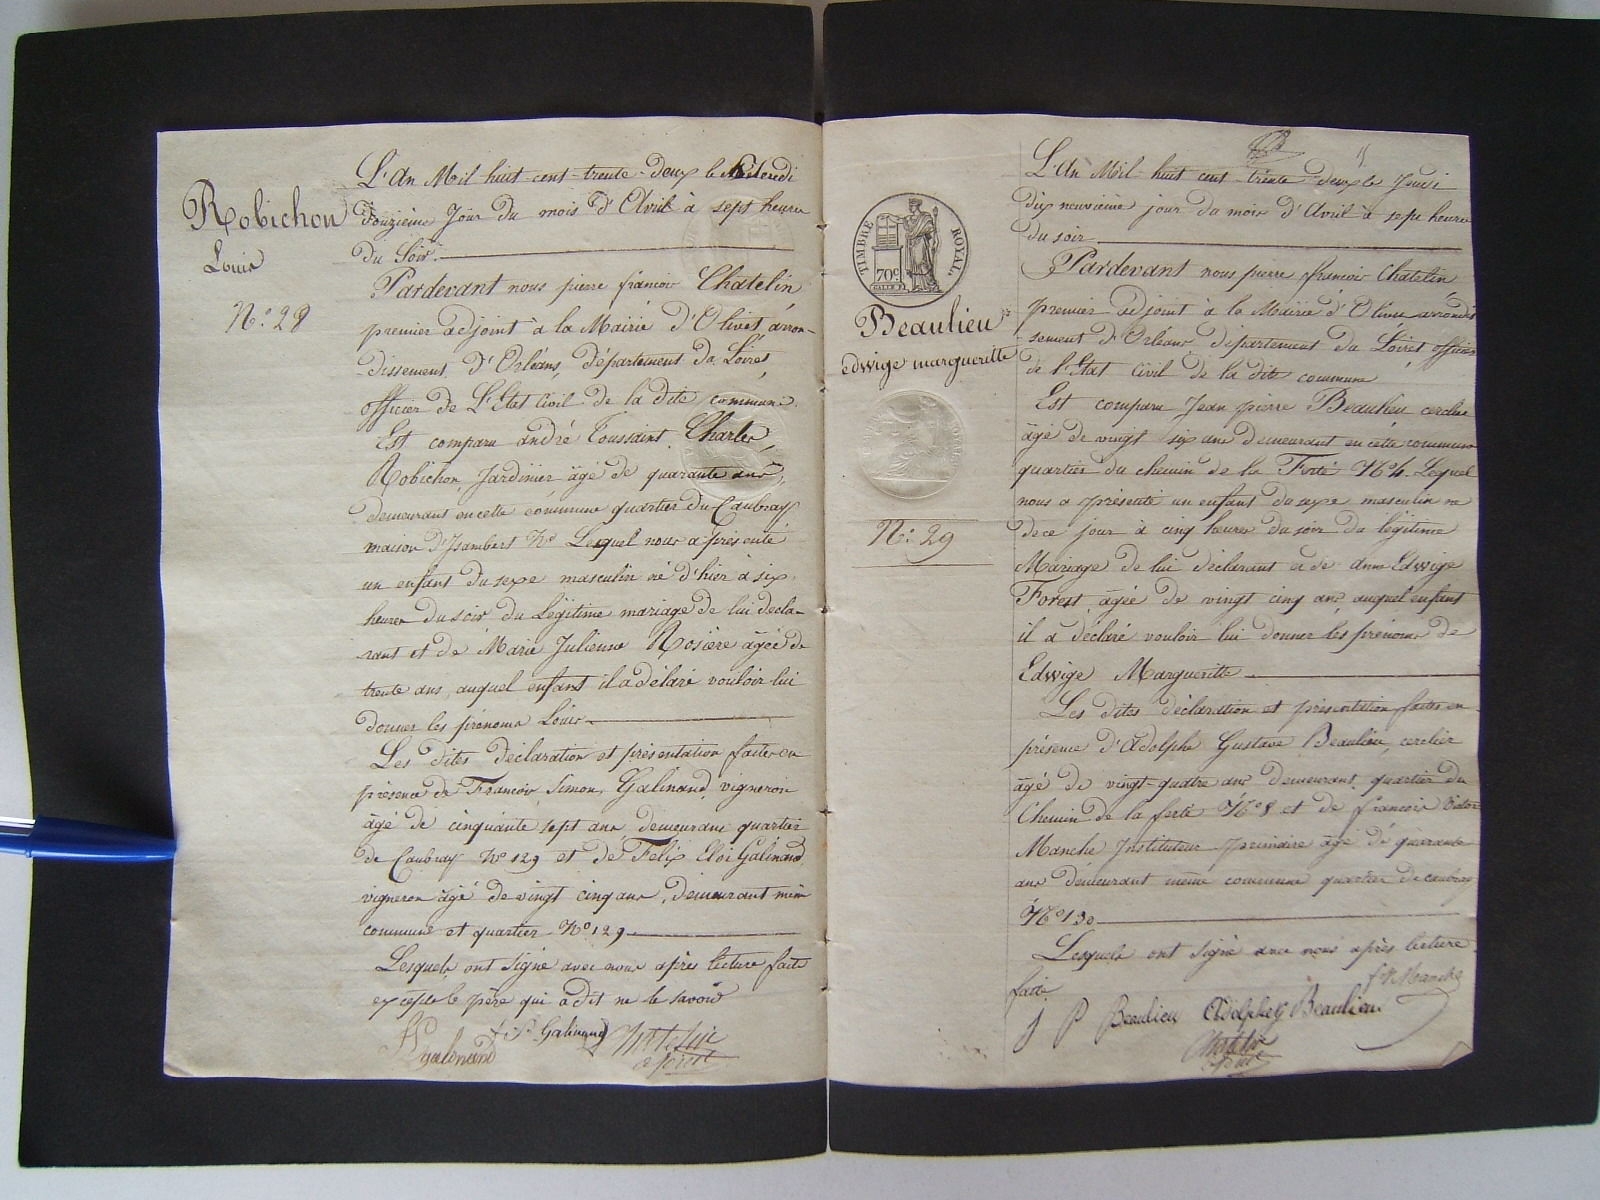 Robichon
Louis
N.° 28
L'An Mil huit-cent-trente-deux le
Douzième Jour du mois d'Avril à sept heures
du Soir.
Pardevant nous pierre francois Chatelin
premier adjoint à la Mairie d'Olivet, arron-
dissement, d'Orléans, département du Loiret,
officier de L'Etat Civil de la dite commune.
Est comparu andré Toussaint, Charles,
Robichon, Jardinier âgé de quarante ans,
demeurant en cette commune quartier du Caubray
maison d'Isambert N.° Lequel nous a présenté
un enfant du sexe masculin né d'hier à six
heures du soir du Légitime mariage de lui décla-
rant et de Marie Julienne Rosière agée de
trente ans, auquel enfant il a délaré vouloir lui
donner les prénoms Louis
Les dites déclaration et présentation faites en
présence de Francois, Simon, Galinand, vigneron
âgé de cinquante sept ans demeurant quartier
de Caubray N° 129 et de Felix Eloi Galinand
vigneron âgé de vingt cinq ans, demeurant même
commune et quartier N° 129
Lesquels ont signé avec nous après lecture faite
excepté le père qui a dit ne le savoir
galinand
f. S. Galinand
Chatelin
adjoint
TIMBRE ROYAL
70c
Beaulieu
edwige margueritte
N.° 29
L'An Mil-huit cent-trente-deux le Jeudi
dix neuvième jour du mois d'Avril à sept heures
du soir
Pardevant nous pierre francois Chatelin
premier adjoint à la Mairie d'Olivet arrondis
sement d'Orléans, département du Loiret officier
de l'Etat civil de la dite commune
Est comparu Jean pierre Beaulieu cerclier
âgé de vingt six ans demeurant en cette commune
quartier du chemin de la Ferté N° 4. Lequel
nous a présenté un enfant du sexe masculin né
de ce jour à cinq heures du soir du légitime
Mariage de lui déclarant & de anne Edwige
Forest, âgée de vingt cinq ans, auquel enfant
il a déclaré vouloir lui donner les prénoms de
Edwige Margueritte
Les dites déclaration et présentation faites en
présence d'Adolphe Gustave Beaulieu, cerclier
âgé de vingt-quatre ans demeurant quartier du
Chemin de la ferté N° 8 et de francois Victor
Manche Instituteur primaire âgé de quarante
ans demeurant même commune quartier de caubray
N° 130
Lesquels ont signé avec nous après lecture
faite.
Manche
j P Beaulieu Adolphe g Beaulieu
Chatelin
adjoint